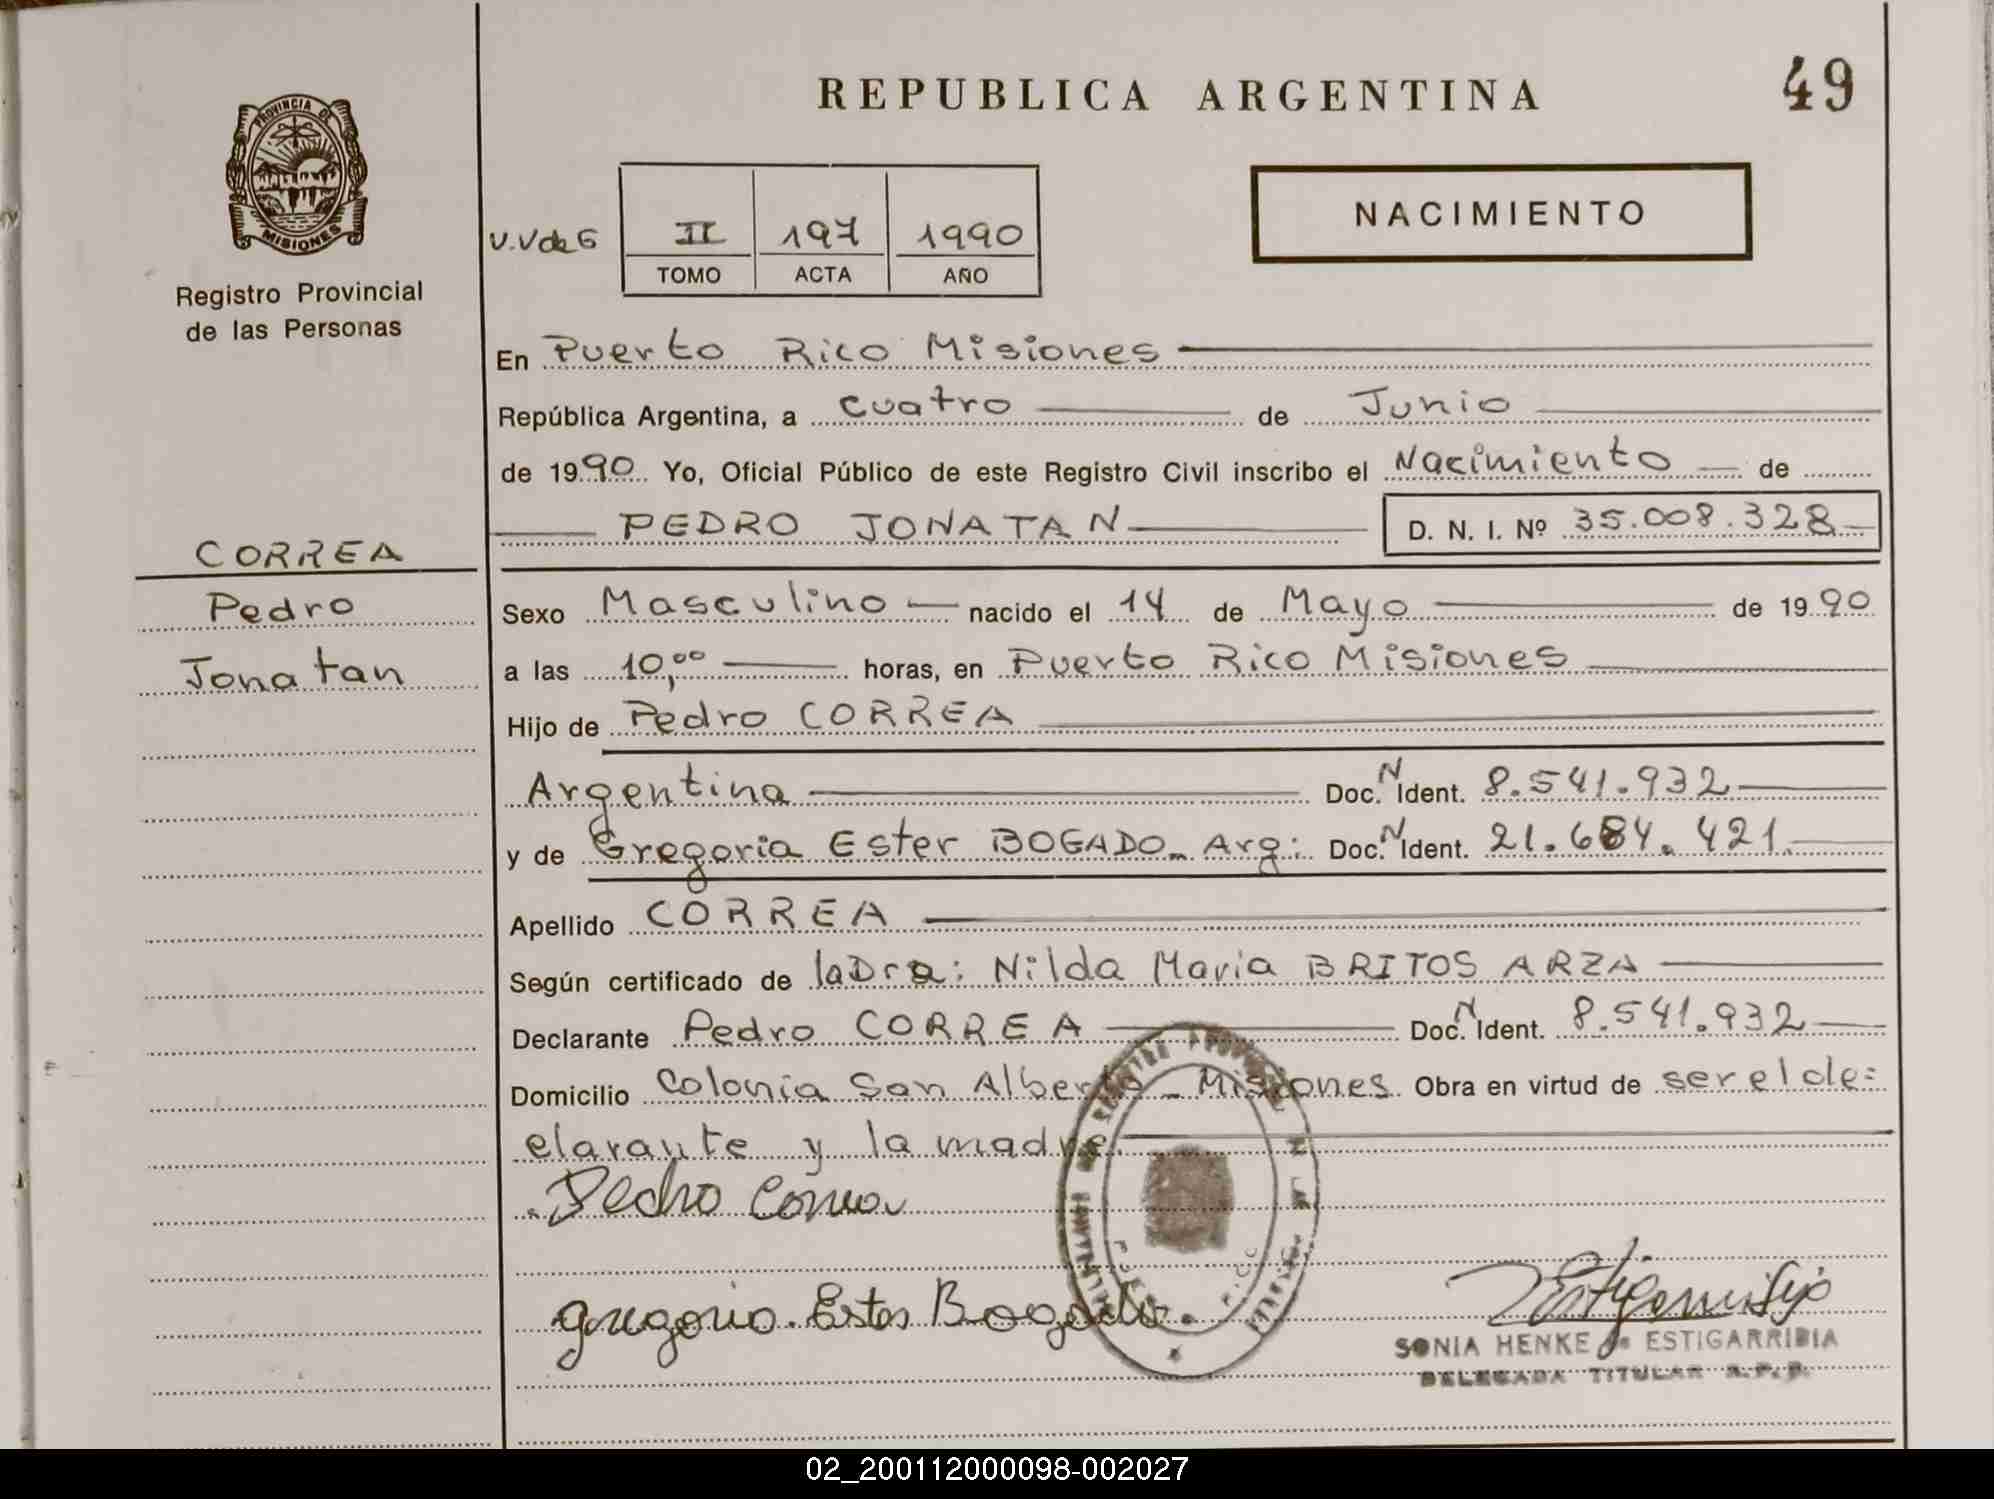 REPUBLICA ARGENTINA
49
PROVINCIA DE
MISIONES
Registro Provincial
de las Personas
V.V de G
II
197
1990
TOMO
ACTA
AÑO
NACIMIENTO
En Puerto Rico Misiones
República Argentina, a cuatro de Junio
de 1990 Yo, Oficial Público de este Registro Civil inscribo el Nacimiento de
PEDRO JONATAN D. N. I. Nº 35.008.328
CORREA
Pedro
Jonatan
Sexo Masculino nacido el 14 de Mayo de 1990
a las 10,00 horas, en Puerto Rico Misiones
Hijo de Pedro CORREA
Argentina Doc. N Ident. 8.541.932
y de Gregoria Ester BOGADO. Arg: Doc. N Ident. 21.684.421
Apellido CORREA
Según certificado de la Dra: Nilda Maria BRITOS ARZA
Declarante Pedro CORREA Doc. N Ident. 8.541.932
Domicilio Colonia San Alberto - Misiones Obra en virtud de ser el de=
clarante y la madre.
Pedro Correa
Gregoria Ester Bogado
Estigarribia
SONIA HENKE de ESTIGARRIBIA
DELEGADA TITULAR R.P.P.
02_200112000098-002027